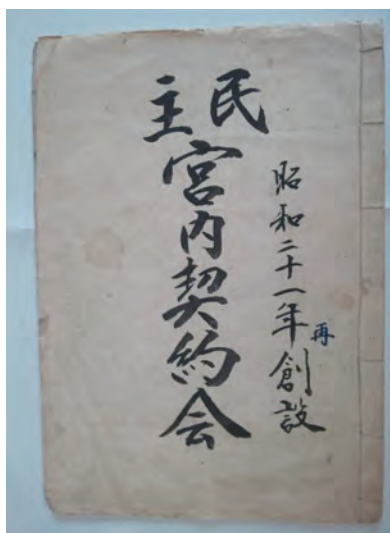 昭和二十一年再創設
民主宮内契約会